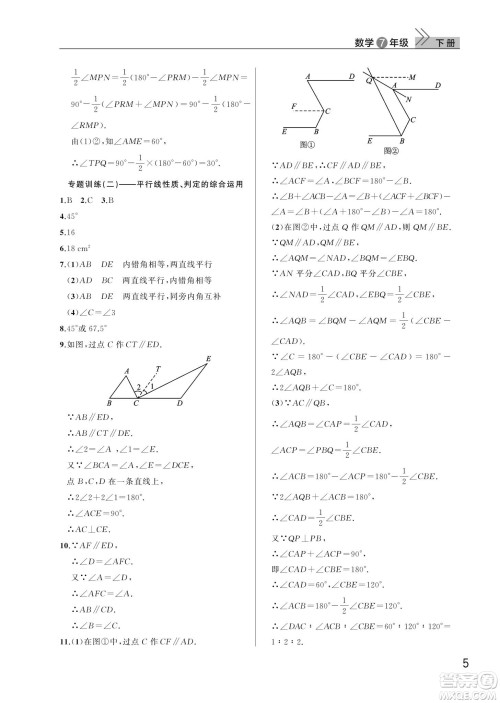 数学 7 年级 下册
1/2∠MPN=1/2(180°-∠PRM)-1/2∠MPN=
90°-1/2(∠PRM+∠MPN)=90°-1/2(180°-
∠RMP).
由(1)(2),知∠AME=60°,
∴∠TPQ=90°-1/2×(180°-60°)=30°.
专题训练(二)——平行线性质、判定的综合运用
1.B 2.C 3.B
4.45°
5.16
6.18 cm²
7.(1)AB DE 内错角相等,两直线平行
(2)AD BC 内错角相等,两直线平行
(3)AB DE 两直线平行,同旁内角互补
(4)∠C=∠3
8.45°或 67.5°
9.如图,过点 C 作 CT∥ED.
A T E
2 1
B C D
∵AB∥ED,
∴AB∥CT∥DE.
∴∠2=∠A,∠1=∠E.
又∵∠BCA=∠A,∠E=∠DCE,
点 B,C,D 在一条直线上,
∴2∠2+2∠1=180°.
∴∠ACE=90°.
∴AC⊥CE.
10.∵AF∥ED,
∴∠A=∠CED.
又∵∠A=∠D,
∴∠D=∠CED.
∴AB∥CD.
∴∠B=∠C.
11.(1)在图①中,过点 C 作 CF∥AD.
A D
F C
E B
图①
Q M
A D
N
C
P
E B
图②
∵AD∥BE,∴CF∥AD∥BE.
∴∠ACF=∠A,∠BCF=180°-∠B.
∴∠ACB+∠B-∠A=∠B+(∠ACF+∠BCF)-
∠A=∠B+∠A+180°-∠B-∠A=180°.
(2)在图②中,过点 Q 作 QM∥AD,则 QM∥BE.
∵QM∥AD,QM∥BE,
∴∠AQM=∠NAD,∠BQM=∠EBQ.
∵AN 平分∠CAD,BQ 平分∠CBE,
∴∠NAD=1/2∠CAD,∠EBQ=1/2∠CBE.
∴∠AQB=∠BQM-∠AQM=1/2(∠CBE-
∠CAD).
∵∠C=180°-(∠CBE-∠CAD)=180°-
2∠AQB,
∴2∠AQB+∠C=180°.
(3)∵AC∥QB,
∴∠AQB=∠CAP=1/2∠CAD,
∠ACP=∠PBQ=1/2∠CBE.
∴∠ACB=180°-∠ACP=180°-1/2∠CBE.
∵2∠AQB+∠ACB=180°,
∴∠CAD=1/2∠CBE.
又∵QP⊥PB,
∴∠CAP+∠ACP=90°,
即∠CAD+∠CBE=180°.
∴∠CAD=60°,∠CBE=120°.
∴∠ACB=180°-1/2∠CBE=120°.
∴∠DAC∶∠ACB∶∠CBE=60°∶120°∶120°=
1∶2∶2.
5